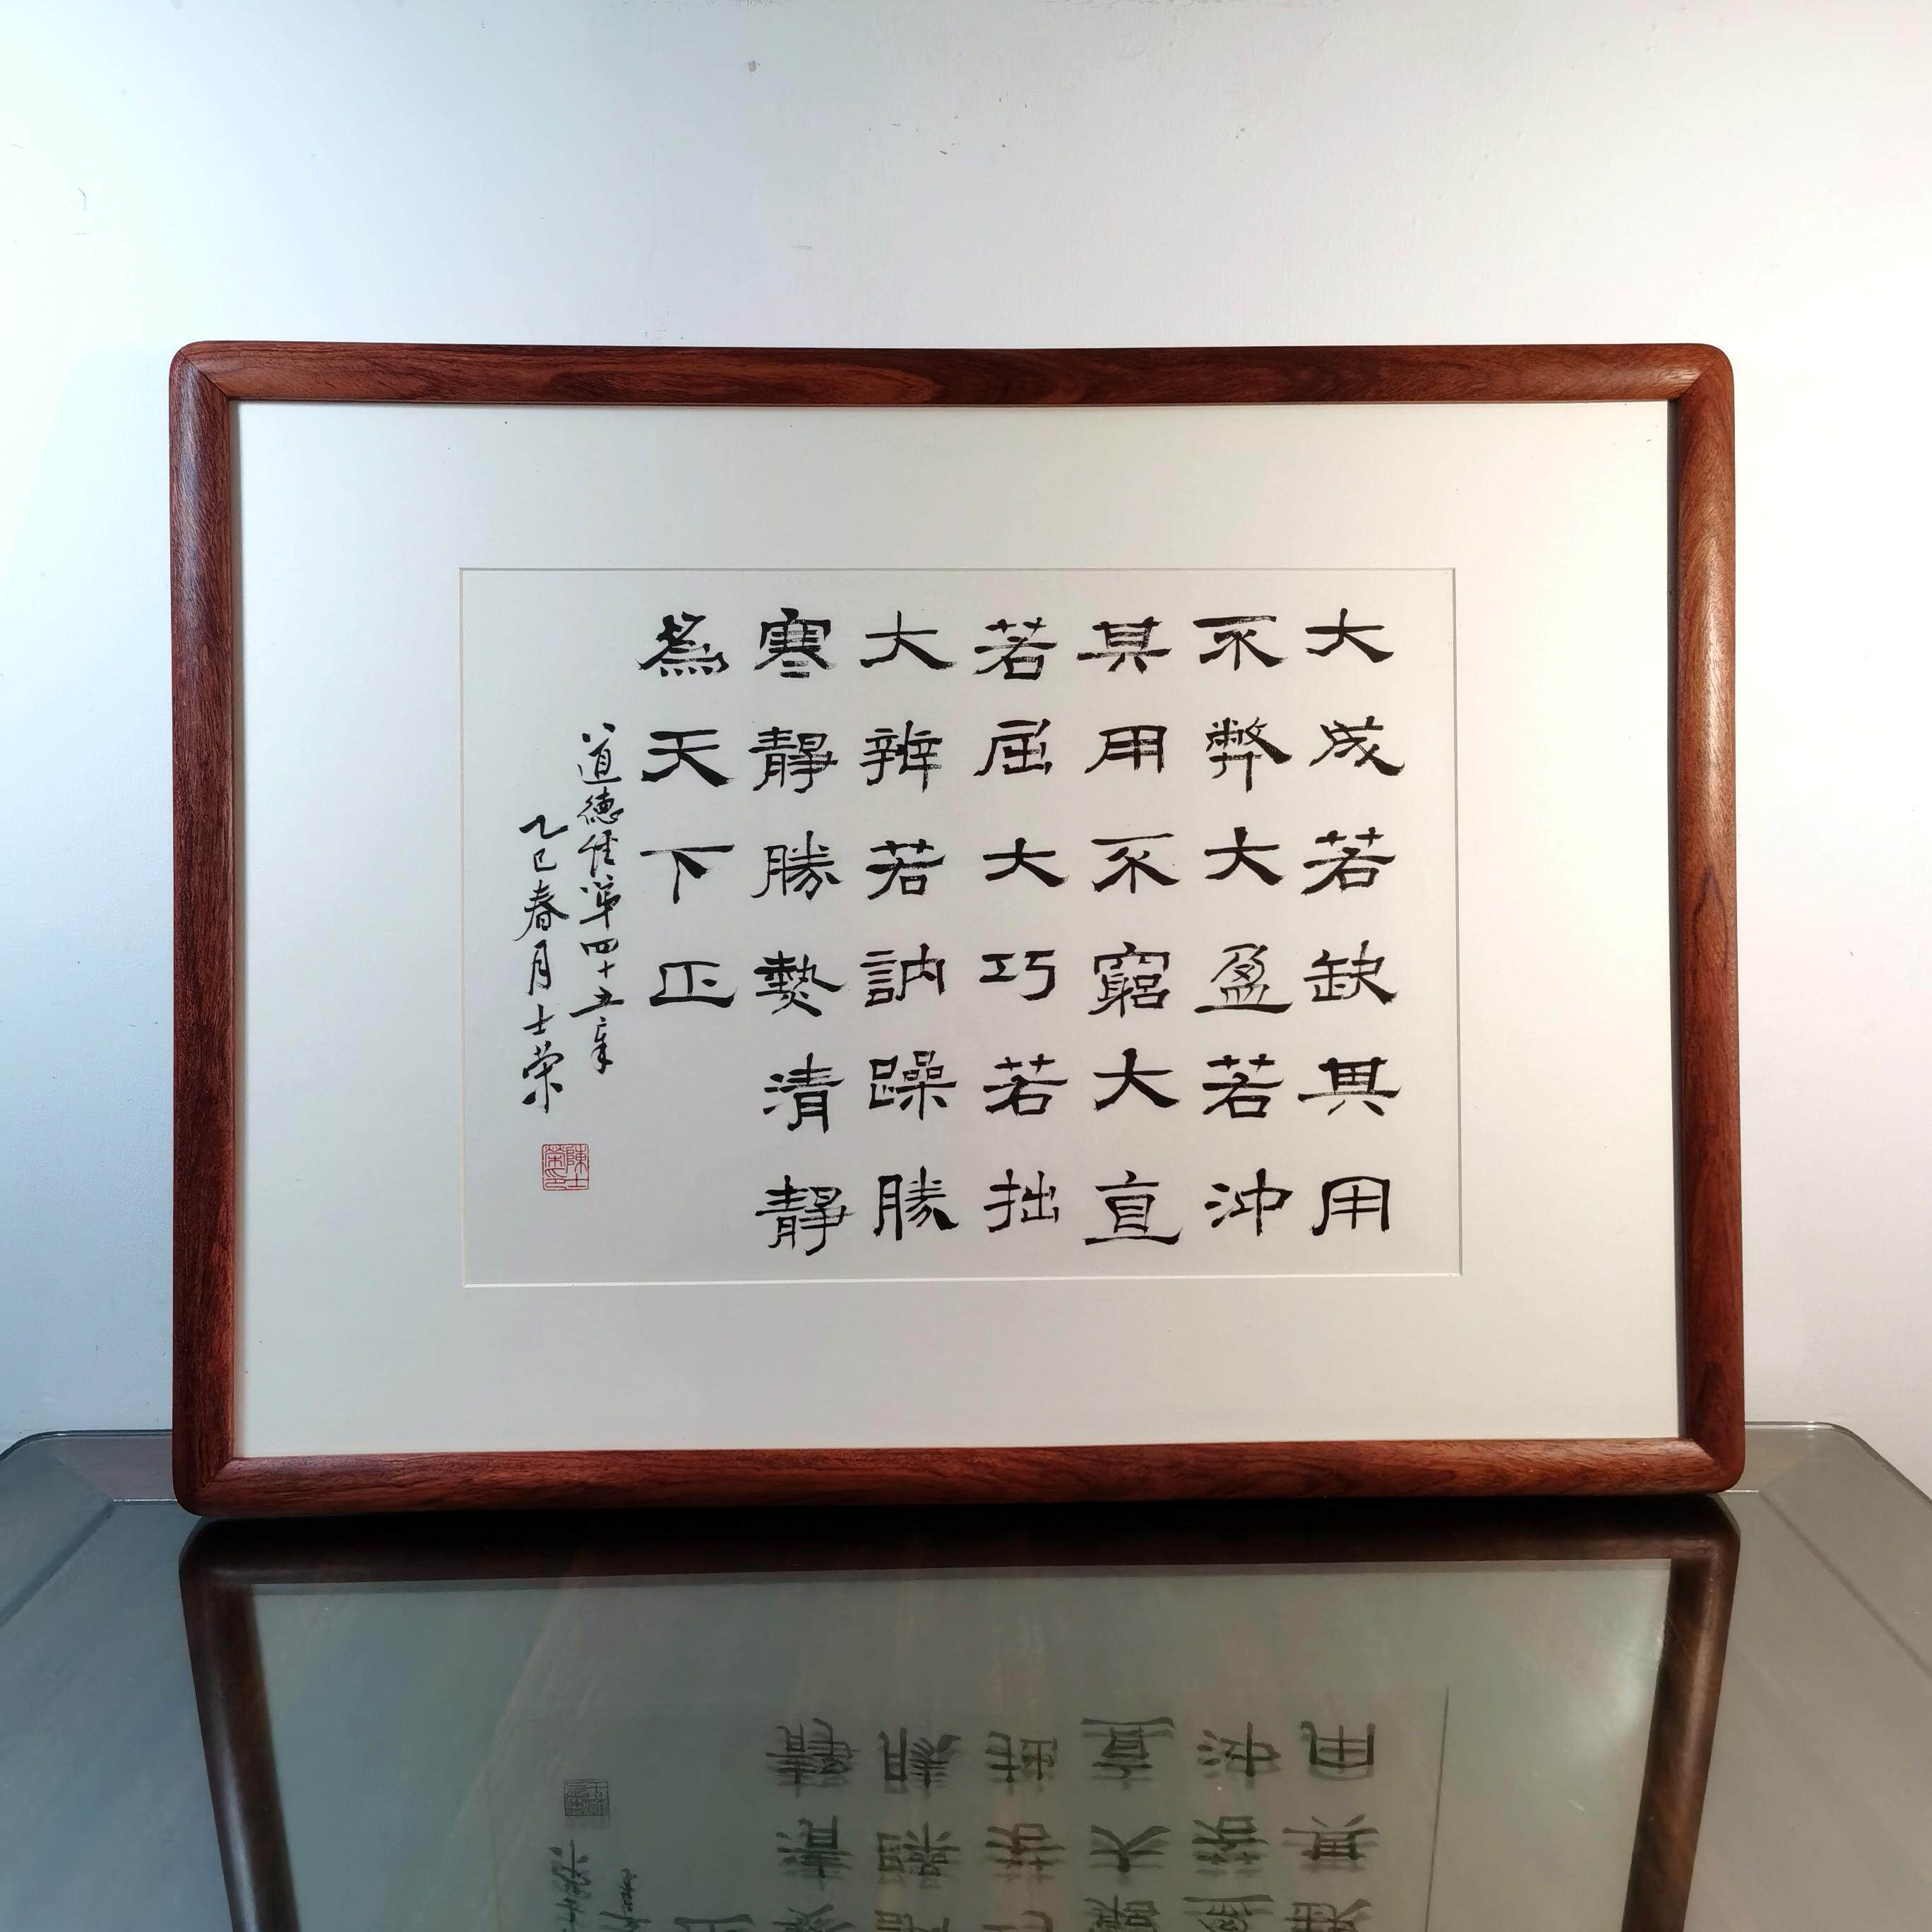 大成若缺其用
不弊大盈若沖
其用不窮大直
若屈大巧若拙
大辨若訥躁勝
寒靜勝熱清靜
為天下正
道德經第四十五章
乙巳春月士荣
陳士榮印